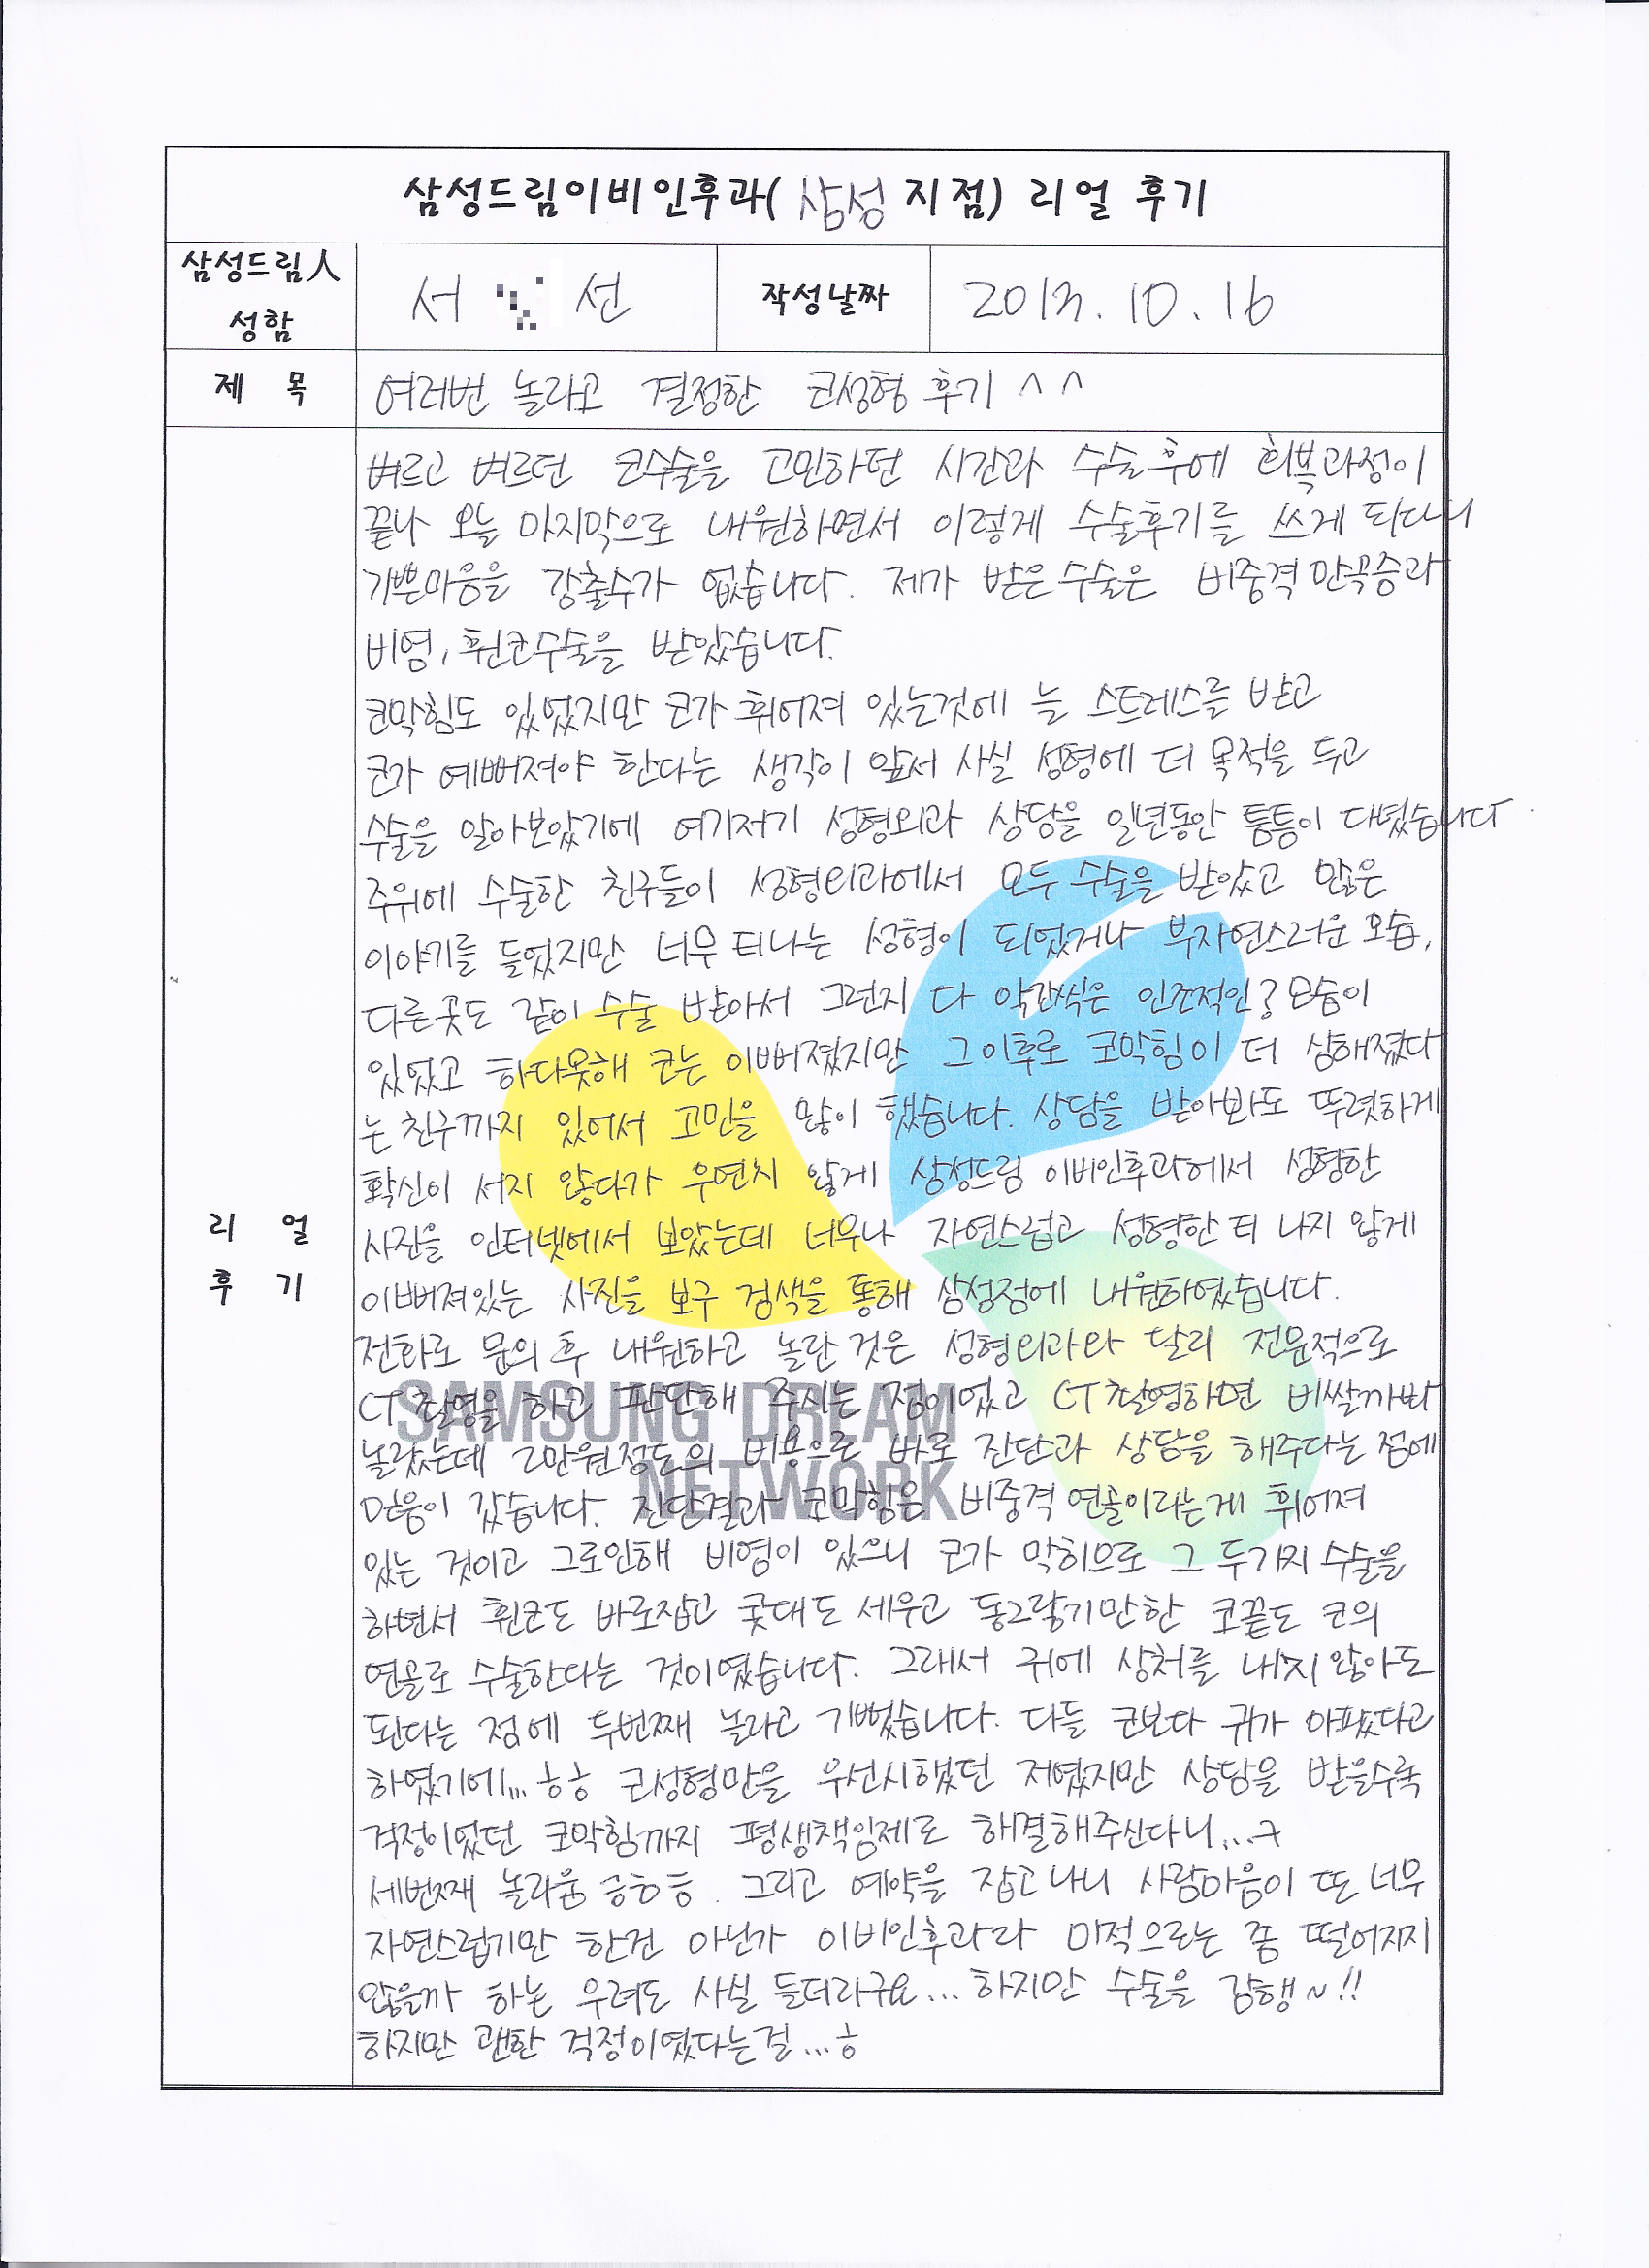 삼성드림이비인후과( 삼성 지점) 리얼 후기
삼성드림人
성함
서 선
작성날짜
2013. 10. 16
제 목
여러번 놀라고 결정한 코성형 후기 ^ ^
리 얼
후 기
벼르고 벼르던 코수술을 고민하던 시간과 수술후에 회복과정이
끝나 오늘 마지막으로 내원하면서 이렇게 수술후기를 쓰게 되다니
기쁜마음을 감출수가 없습니다. 제가 받은수술은 비중격만곡증과
비염, 휜코수술을 받았습니다.
코막힘도 있었지만 코가 휘어져 있는것에 늘 스트레스를 받고
코가 예뻐져야 한다는 생각이 앞서 사실 성형에 더 목적을 두고
수술을 알아보았기에 여기저기 성형외과 상담을 일년동안 틈틈이 다녔습니다.
주위에 수술한 친구들이 성형외과에서 모두 수술을 받았고 많은
이야기를 들었지만 너무 티나는 성형이 되었거나 부자연스러운 모습,
다른곳도 같이 수술 받아서 그런지 다 약간씩은 인조적인? 모습이
있었고 하다못해 코는 이뻐졌지만 그이후로 코막힘이 더 심해졌다
는 친구까지 있어서 고민을 많이 했습니다. 상담을 받아봐도 뚜렷하게
확신이 서지 않다가 우연치 않게 삼성드림 이비인후과에서 성형한
사진을 인터넷에서 보았는데 너무나 자연스럽고 성형한 티 나지 않게
이뻐져있는 사진을 보구 검색을 통해 삼성점에 내원하였습니다.
전화로 문의 후 내원하고 놀란 것은 성형외과와 달리 전문적으로
CT 촬영을 하고 판단해 주시는 점이었고 CT촬영하면 비쌀까봐
놀랐는데 2만원정도의 비용으로 바로 진단과 상담을 해주다는 점에
믿음이 갔습니다. 진단결과 코막힘은 비중격 연골이라는게 휘어져
있는 것이고 그로인해 비염이 있으니 코가 막히므로 그 두가지 수술을
하면서 휜코도 바로잡고 콧대도 세우고 동그랗기만한 코끝도 코의
연골로 수술한다는 것이였습니다. 그래서 귀에 상처를 내지 않아도
된다는 점에 두번째 놀라고 기뻤습니다. 다들 코보다 귀가 아팠다고
하였기에... ㅎㅎ 코성형만을 우선시했던 저였지만 상담을 받을수록
걱정이었던 코막힘까지 평생책임제로 해결해주신다니...ㅋ
세번째 놀라움 ㅎㅎ. 그리고 예약을 잡고나니 사람마음이 또 너무
자연스럽기만 한건 아닌가 이비인후과라 미적으로는 좀 떨어지지
않을까 하는 우려도 사실 들더라구요... 하지만 수술을 감행~!!
하지만 괜한 걱정이였다는걸...ㅎ
SAMSUNG DREAM
NETWORK